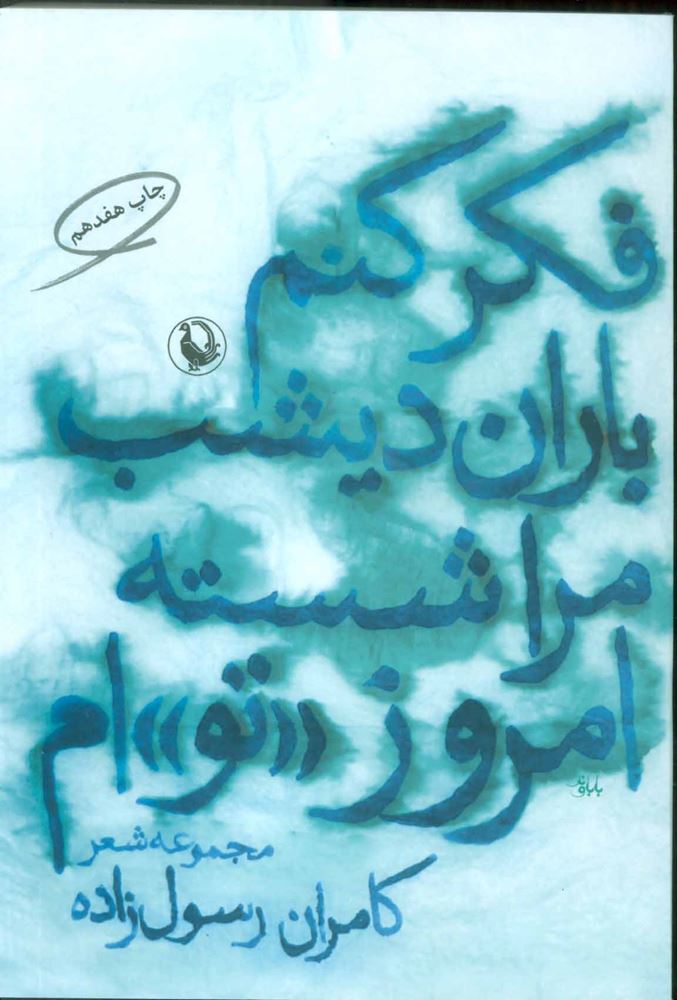 چاپ هفدهم
فکر کنم
باران دیشب
مرا شسته
امروز «تو»ام
باباوند
مجموعه شعر
کامران رسول‌زاده